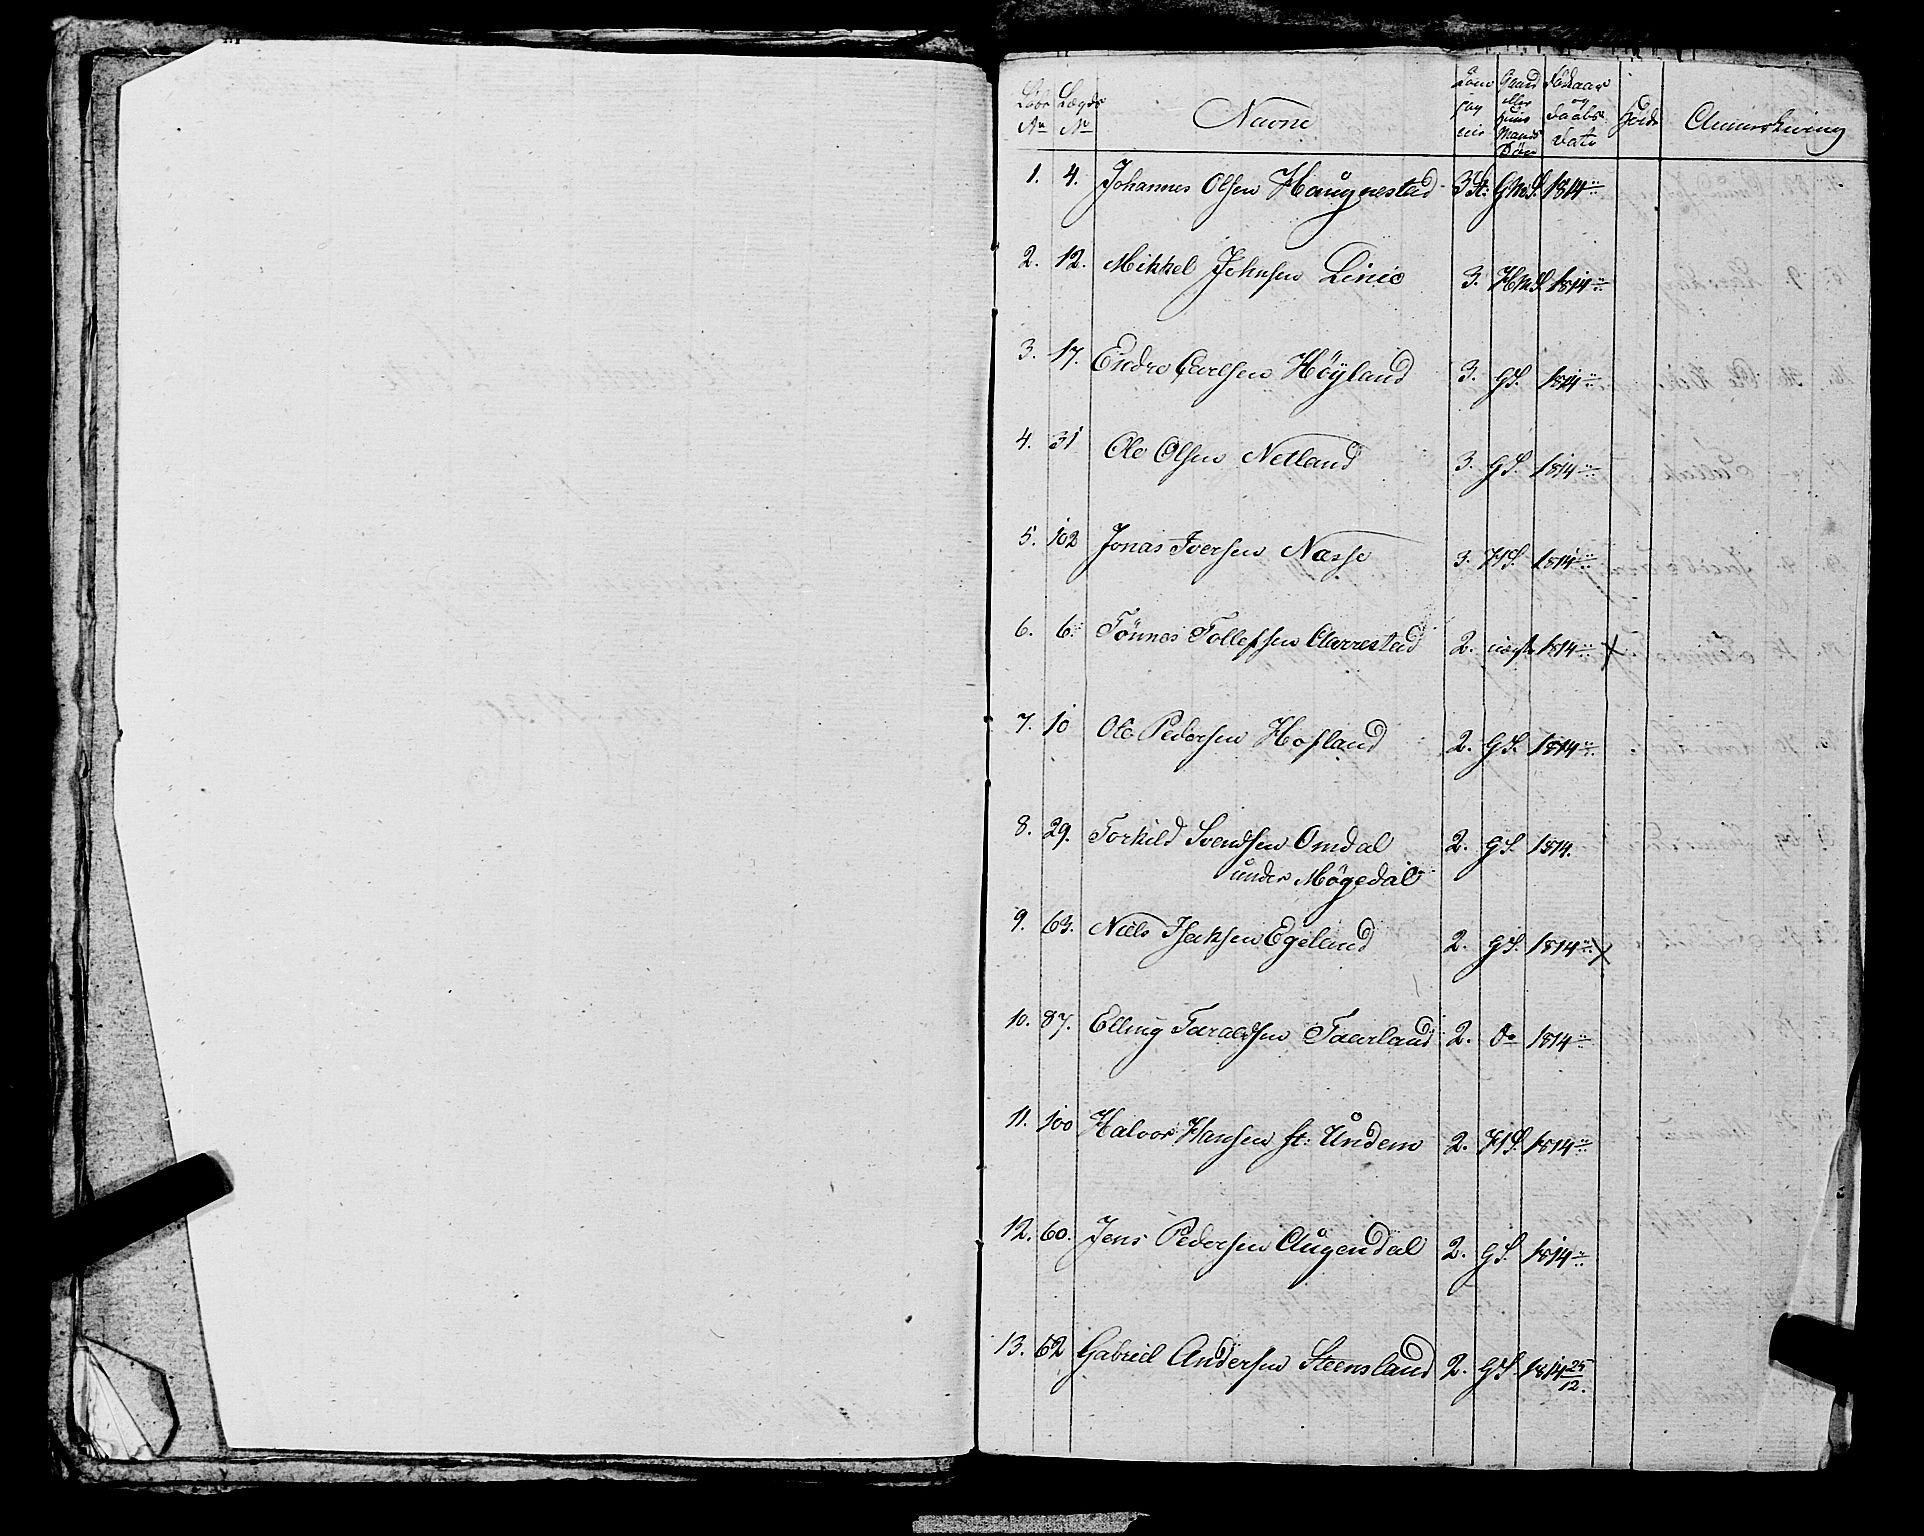 Løbe No Lægds No Navne Gaard eller Huus Mands Søn Fødaar og Daabs Dato Høide Anmærkning
1. 4. Johannes Olsen Haugnestad 3 St: GMdS. 1814
2. 12. Mikkel Johnsen Linie 3. HMdS. 1814
3. 17. Endre Carlsen Høyland 3. GS. 1814
4. 31 Ole Olsen Netland 3. GS. 1814
5. 102 Jonas Iversen Næsse 3. HS. 1814
6. 6. Tönnes Tollefsen Aarrestad 2. 1814 X
7. 10 Ole Pedersen Hofland 2. GS. 1814
8. 29. Torkild Svendsen Omdal 2. GS. 1814.
under Møgedal
9. 63. Niels Isaksen Egeland 2. GS. 1814 X
10. 87. Elling Taraldsen Taarland 2. Do 1814
11. 100 Halvor Hansen st: Undem 2. HS. 1814
12. 60. Jens Pedersen Augendal 2. GS. 1814
13. 62 Gabriel Andersen Steensland 2. GS. 1814 25/12.